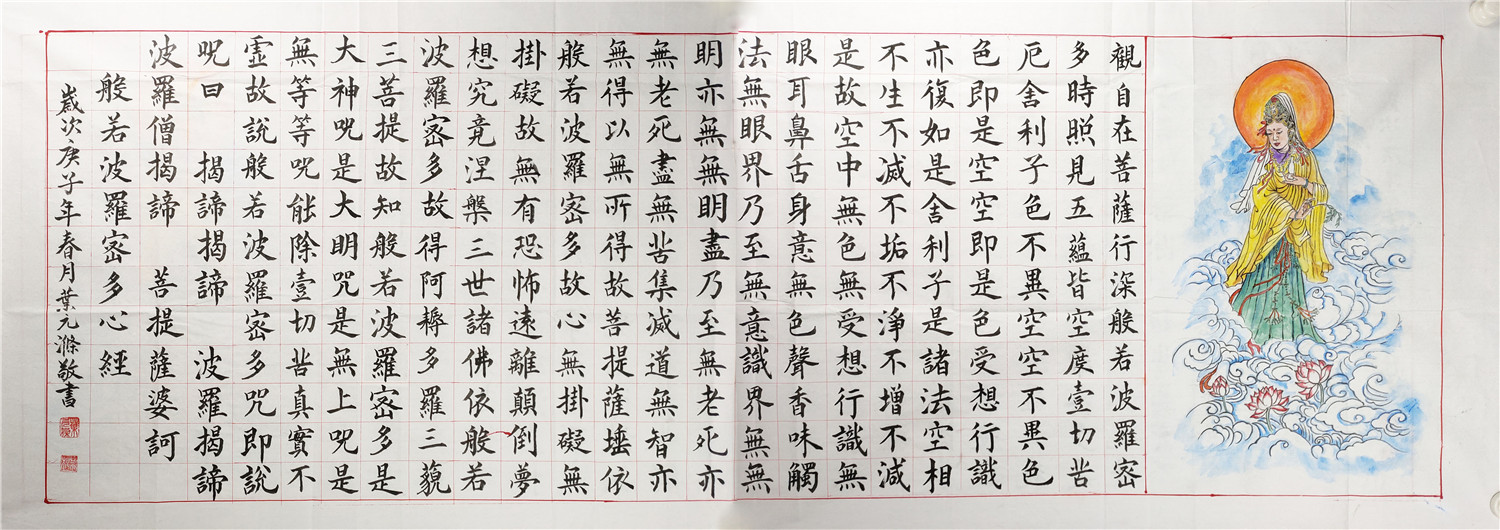 觀自在菩薩行深般若波羅密
多時照見五蘊皆空度壹切苦
厄舍利子色不異空空不異色
色即是空空即是色受想行識
亦復如是舍利子是諸法空相
不生不滅不垢不淨不增不減
是故空中無色無受想行識無
眼耳鼻舌身意無色聲香味觸
法無眼界乃至無意識界無無
明亦無無明盡乃至無老死亦
無老死盡無苦集滅道無智亦
無得以無所得故菩提薩埵依
般若波羅密多故心無掛礙無
掛礙故無有恐怖遠離顛倒夢
想究竟涅槃三世諸佛依般若
波羅密多故得阿耨多羅三藐
三菩提故知般若波羅密多是
大神咒是大明咒是無上咒是
無等等咒能除壹切苦真實不
虛故說般若波羅密多咒即說
咒曰 揭諦揭諦 波羅揭諦
波羅僧揭諦 菩提薩婆訶
般若波羅密多心經
歲次庚子年春月葉元滌敬書